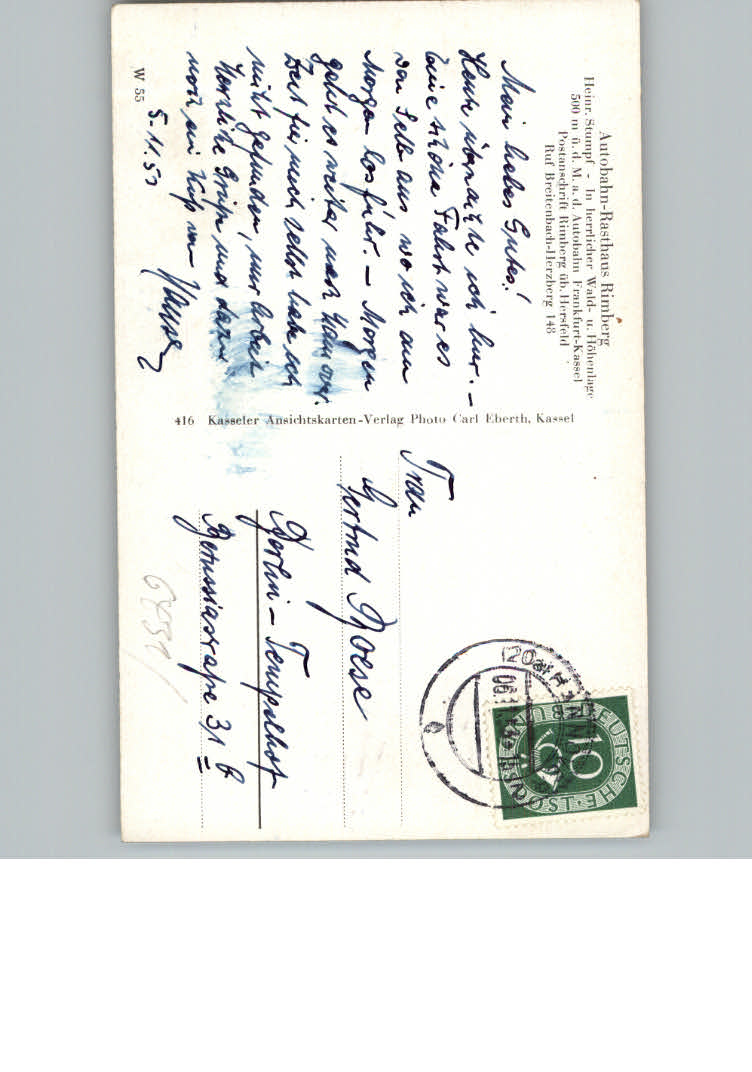 Autobahn-Rasthaus Rimberg
Heinr. Stumpf - In herrlicher Wald- u. Höhenlage
500 m ü. d. M. a. d. Autobahn Frankfurt-Kassel
Postanschrift Rimberg üb. Hersfeld
Ruf Breitenbach-Herzberg 148
Mein liebes Gutes!
Heute übernachte ich hier. –
Eine schöne Fahrt war es
von Selb aus wo ich am
Morgen losfuhr. – Morgen
geht es weiter nach Hannover.
Zeit für mich selbst habe ich
nicht gefunden, nur Arbeit
Herzliche Grüße und dazu
noch ein Kuß von
5.11.53
W 55
416 Kasseler Ansichtskarten-Verlag Photo Carl Eberth, Kassel
Frau
Gertrud Roese
Berlin – Tempelhof
Borussiastraße 31 b
DEUTSCHE BUNDESPOST
10
(20a) HANNOVER
06.11.
b